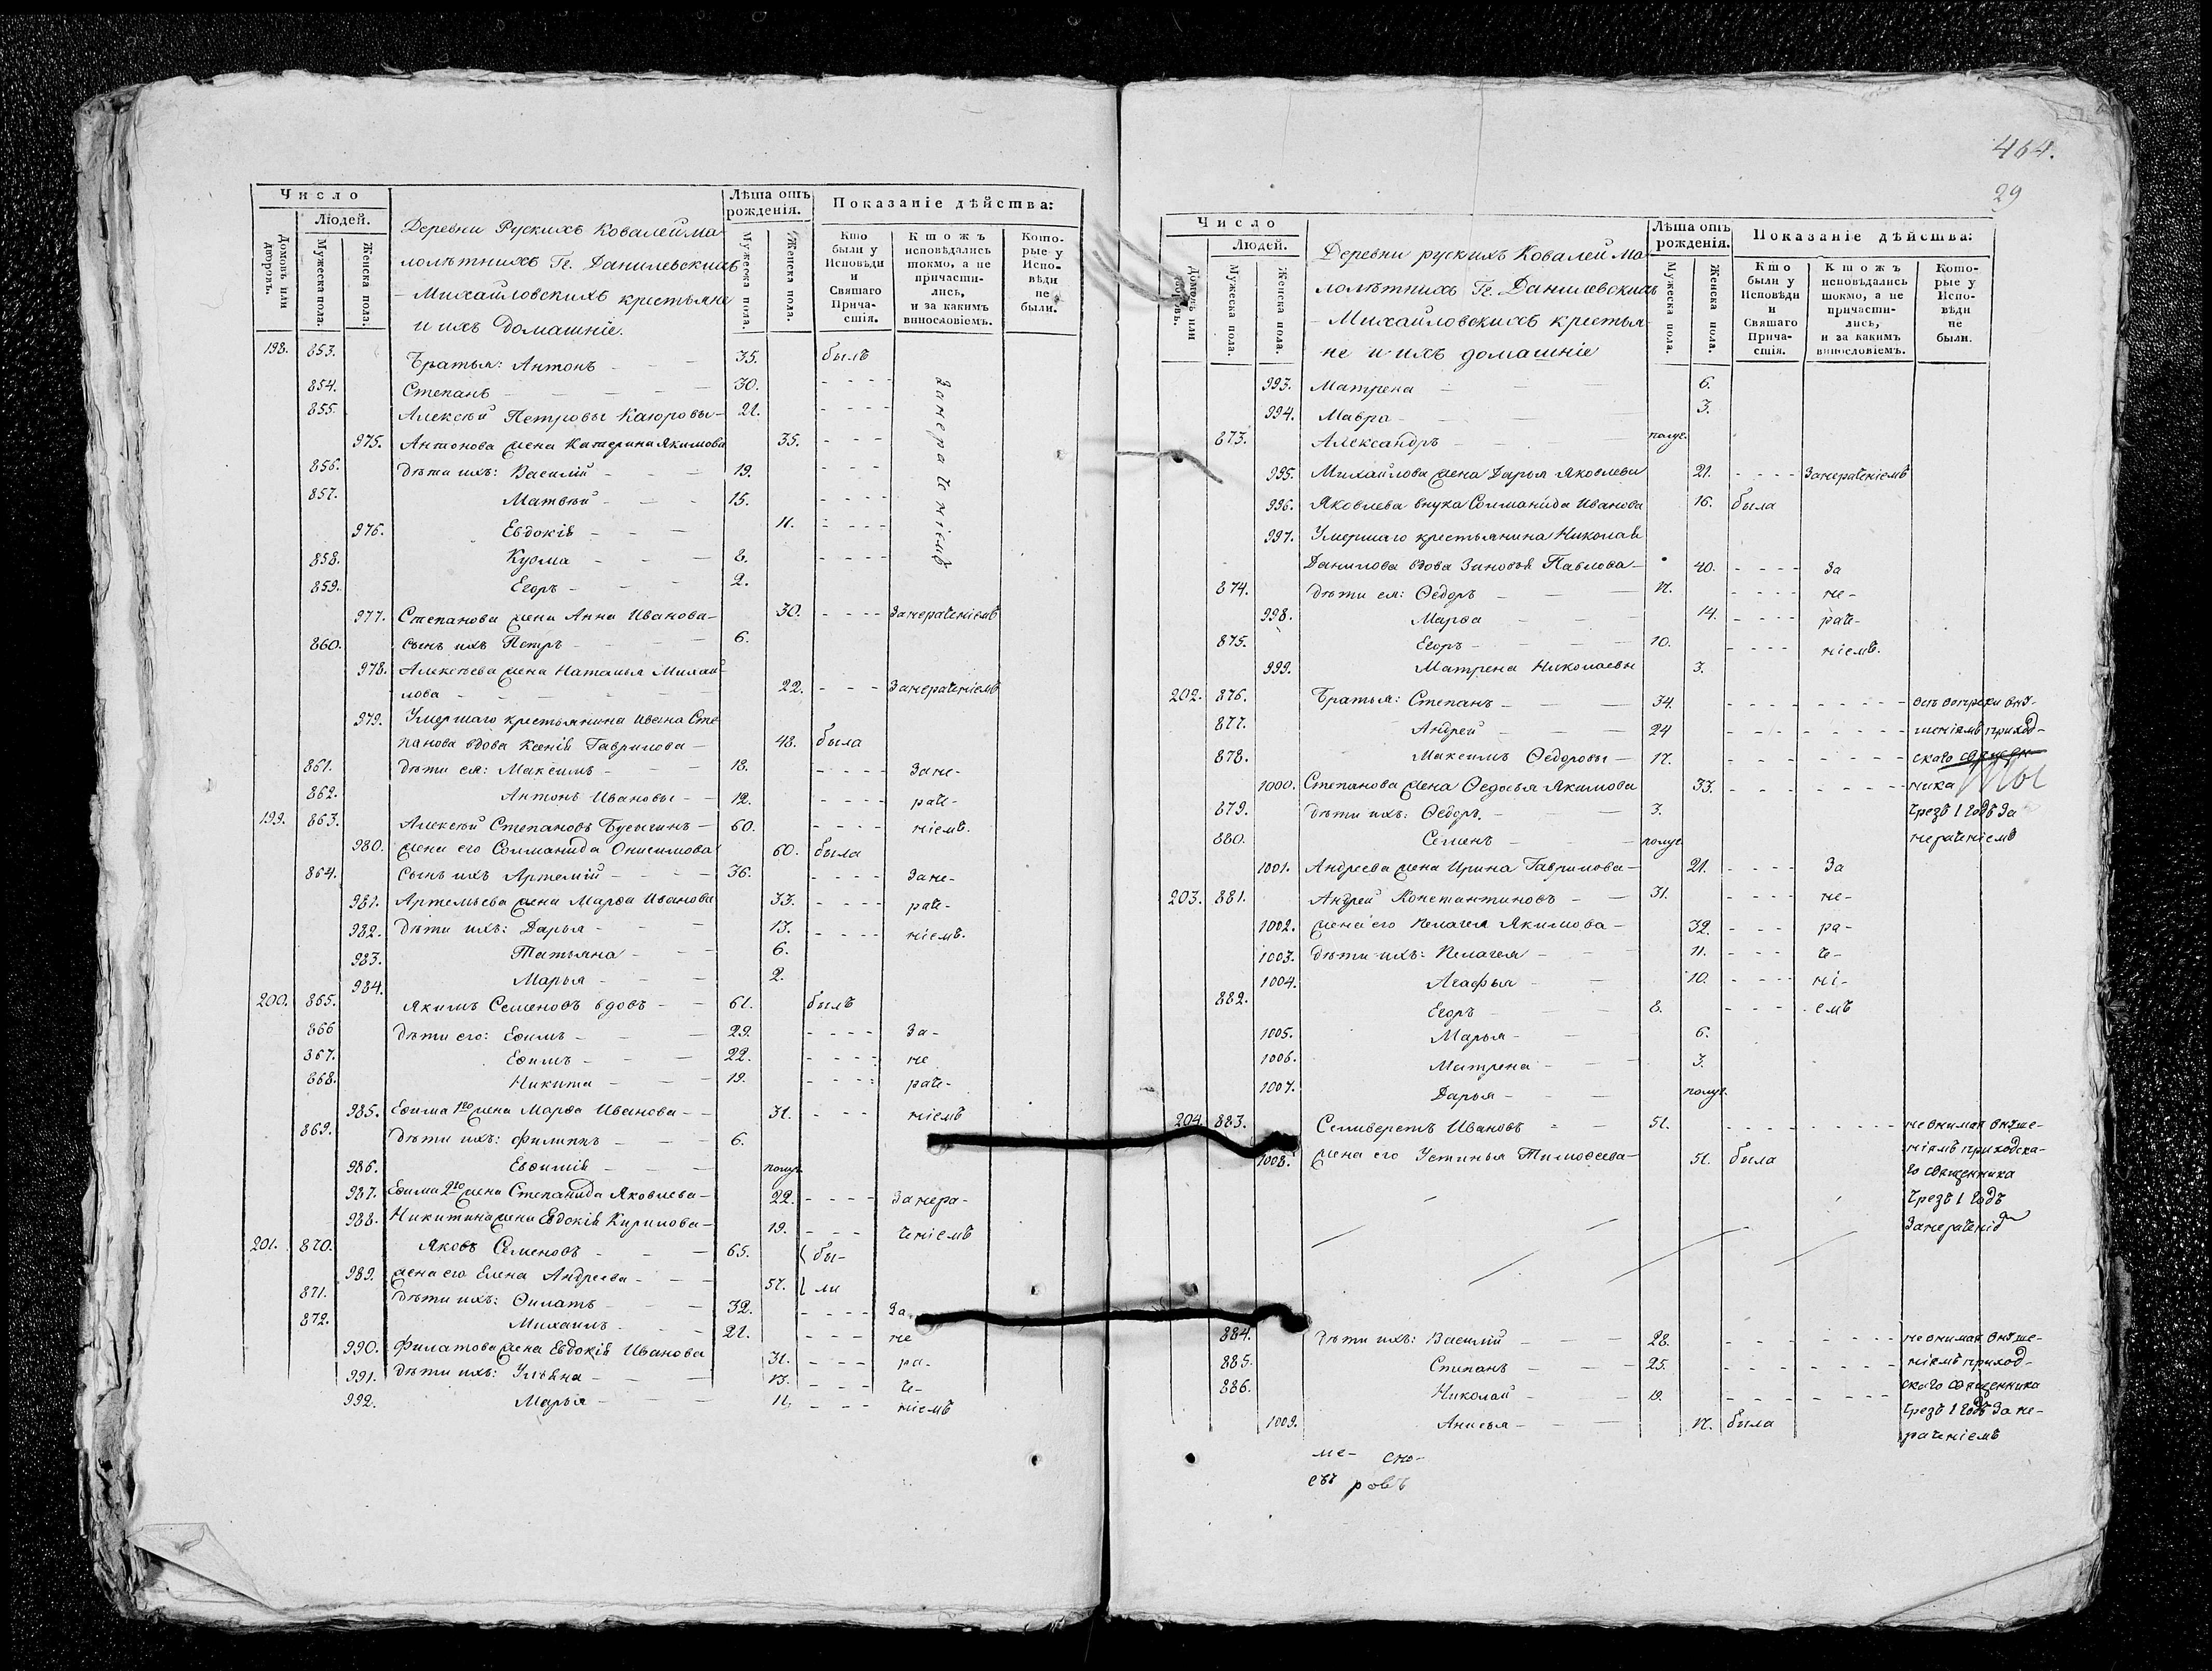 Число
Людей.
Домовъ или дворовъ.
Мужеска пола.
Женска пола.
Деревни Рускихъ Ковалей ма-
лолѣтнихъ Гг. Данилевскихъ
- Михайловскихъ крестьяне
и ихъ домашніе.
Лѣта отъ рожденія.
Мужеска пола.
Женска пола.
Показаніе дѣйства:
Кто были у Исповѣди и Святаго Причастія.
Кто жъ исповѣдались токмо, а не причастились, и за какимъ винословіемъ.
Которые у Исповѣди не были.
198. 853. Братья: Антонъ - 35. былъ
854. Степанъ - 30. - - - -
855. Алексѣй Петровы Каюровы - 21. - - - -
975. Антонова жена Катерина Якимова 35. - - -
856. Дѣти ихъ: Василій - 19. - - -
857. Матвѣй - 15. - - - -
976. Евдокія - 11. - - - -
858. Кузма - 8. - - - -
859. Егоръ - 2.
занераченіемъ
977. Степанова жена Анна Иванова - 30. - - - - Занераченіемъ
860. сынъ ихъ Петръ - 6.
978. Алексѣева жена Наталья Михай-
лова - 22. - - - Занераченіемъ
979. Умершаго крестьянина Ивана Сте-
панова вдова Ксенія Гаврилова - 48. была
861. Дѣти ея: Максимъ - 18. - - - - Зане-
862. Антонъ Ивановы - 12. - - - - раче-
199. 863. Алексѣй Степановъ Бусыгинъ - 60. - - - - ніемъ.
980. жена его Соломанида Онисимова 60. была
864. Сынъ ихъ Артемій - 36. - - - - Зане-
981. Артемьева жена Марѳа Иванова 33. - - - - раче-
982. Дѣти ихъ: Дарья - 13. - - - - ніемъ.
983. Татьяна - 6.
984. Марья - 2.
200. 865. Якимъ Семеновъ вдовъ - 61. былъ
866 Дѣти его: Еѳимъ - 29. - - - - За-
867. Еѳимъ - 22. - - - - не
868. Никита - 19. - - - - раче-
985. Еѳима 1го жена Марѳа Иванова - 31. - - - ніемъ
869. Дѣти ихъ: Филиппъ - 6.
986. Евѳимія - полуг.
987. Еѳима 2го жена Степанида Яковлева - 22. - - - - Занера-
988. Никитина жена Евдокія Кирилова - 19. - - - ченіемъ
201. 870. Яковъ Семеновъ - 65. бы-
989. жена его Елена Андреева - 57. ли
871. Дѣти ихъ: Ѳилатъ - 32. - - - - За
872. Михаилъ - 21. - - - не
990. Филатова жена Евдокія Иванова 31. - - - ра-
991. Дѣти ихъ: Ульяна - 13. - - - че-
992. Марья - 11. - - - ніемъ
464.
29
Число
Людей.
Домовъ или дворовъ.
Мужеска пола.
Женска пола.
Деревни рускихъ Ковалей Ма-
лолѣтнихъ Гг. Данилевскихъ
- Михайловскихъ крестья-
не и ихъ домашніе
Лѣта отъ рожденія.
Мужеска пола.
Женска пола.
Показаніе дѣйства:
Кто были у Исповѣди и Святаго Причастія.
Кто жъ исповѣдались токмо, а не причастились, и за какимъ винословіемъ.
Которые у Исповѣди не были.
993. Матрена - 6.
994. Мавра - 3.
873. Александръ - полуг.
995. Михайлова жена Дарья Яковлева 21. - - - - Занераченіемъ
996. Яковлева внука Соломанида Иванова 16. была
997. Умершаго крестьянина Николая
Данилова вдова Зиновья Павлова - 40. - - - - За
874. Дѣти ея: Ѳедоръ - 17. - - - - не-
998. Марѳа - 14. - - - - раче-
875. Егоръ - 10. - - - - ніемъ.
999. Матрена Николаевы 3.
202. 876. Братья: Степанъ - 34.
877. Андрей - 24 - - - - шеніямъ приход-
878. Максимъ Ѳедоровы - 17. - - - - скаго священ-
1000. Степанова жена Ѳедосья Якимова 33. - - - - ника
879. Дѣти ихъ: Ѳедоръ. - 3. Чрезъ 1 годъ За
880. Семенъ - полуг. нераченіемъ
1001. Андреева жена Ирина Гаврилова - 21. - - - - За
203. 881. Андрей Константиновъ - 31. - - - - не-
1002. жена его Пелагея Якимова - 32. - - - ра-
1003. Дѣти ихъ: Пелагея - 11. - - - че-
1004. Агафья - 10. - - - - ні-
882. Егоръ - 8. - - - - емъ
1005. Марья - 6.
1006. Матрена - 3.
1007. Дарья - полуг.
204. 883. Селиверстъ Ивановъ - 51. - - - - не внимая внуше-
1008. жена его Устинья Тимоѳеева - 51. была ніямъ приходска-
го священника
Чрезъ 1 годъ
Занераченіе
884. Дѣти ихъ: Василій - 28. - - - - не внимая внуше-
885. Степанъ - 25. - - - - ніямъ приход-
886. Николай - 19. - - - - скаго священника
1009. Анисья - 17. была Чрезъ 1 годъ За не-
раченіемъ